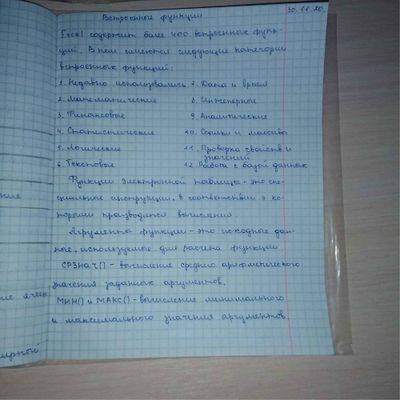 Встроенные функции
30.11.20.
Excel содержит более 400 встроенных функ-
ций. В нём имеются следующие категории
встроенных функций:
1. Недавно использовались 7. Дата и время
2. Математические 8. Инженерные
3. Финансовые 9. Аналитические
4. Статистические 10. Ссылки и массивы
5. Логические 11. Проверка свойств и
значений
6. Текстовые 12. Работа с базой данных
Функции электронной таблицы - это спе-
циальные инструкции, в соответствии с ко-
торыми производятся вычисления.
Аргументы функции - это исходные дан-
ные, используемые для расчёта функции
СРЗНАЧ() - вычисление среднего арифметического
значения заданных аргументов.
МИН() и МАКС() - вычисление минимального
и максимального значения аргументов.